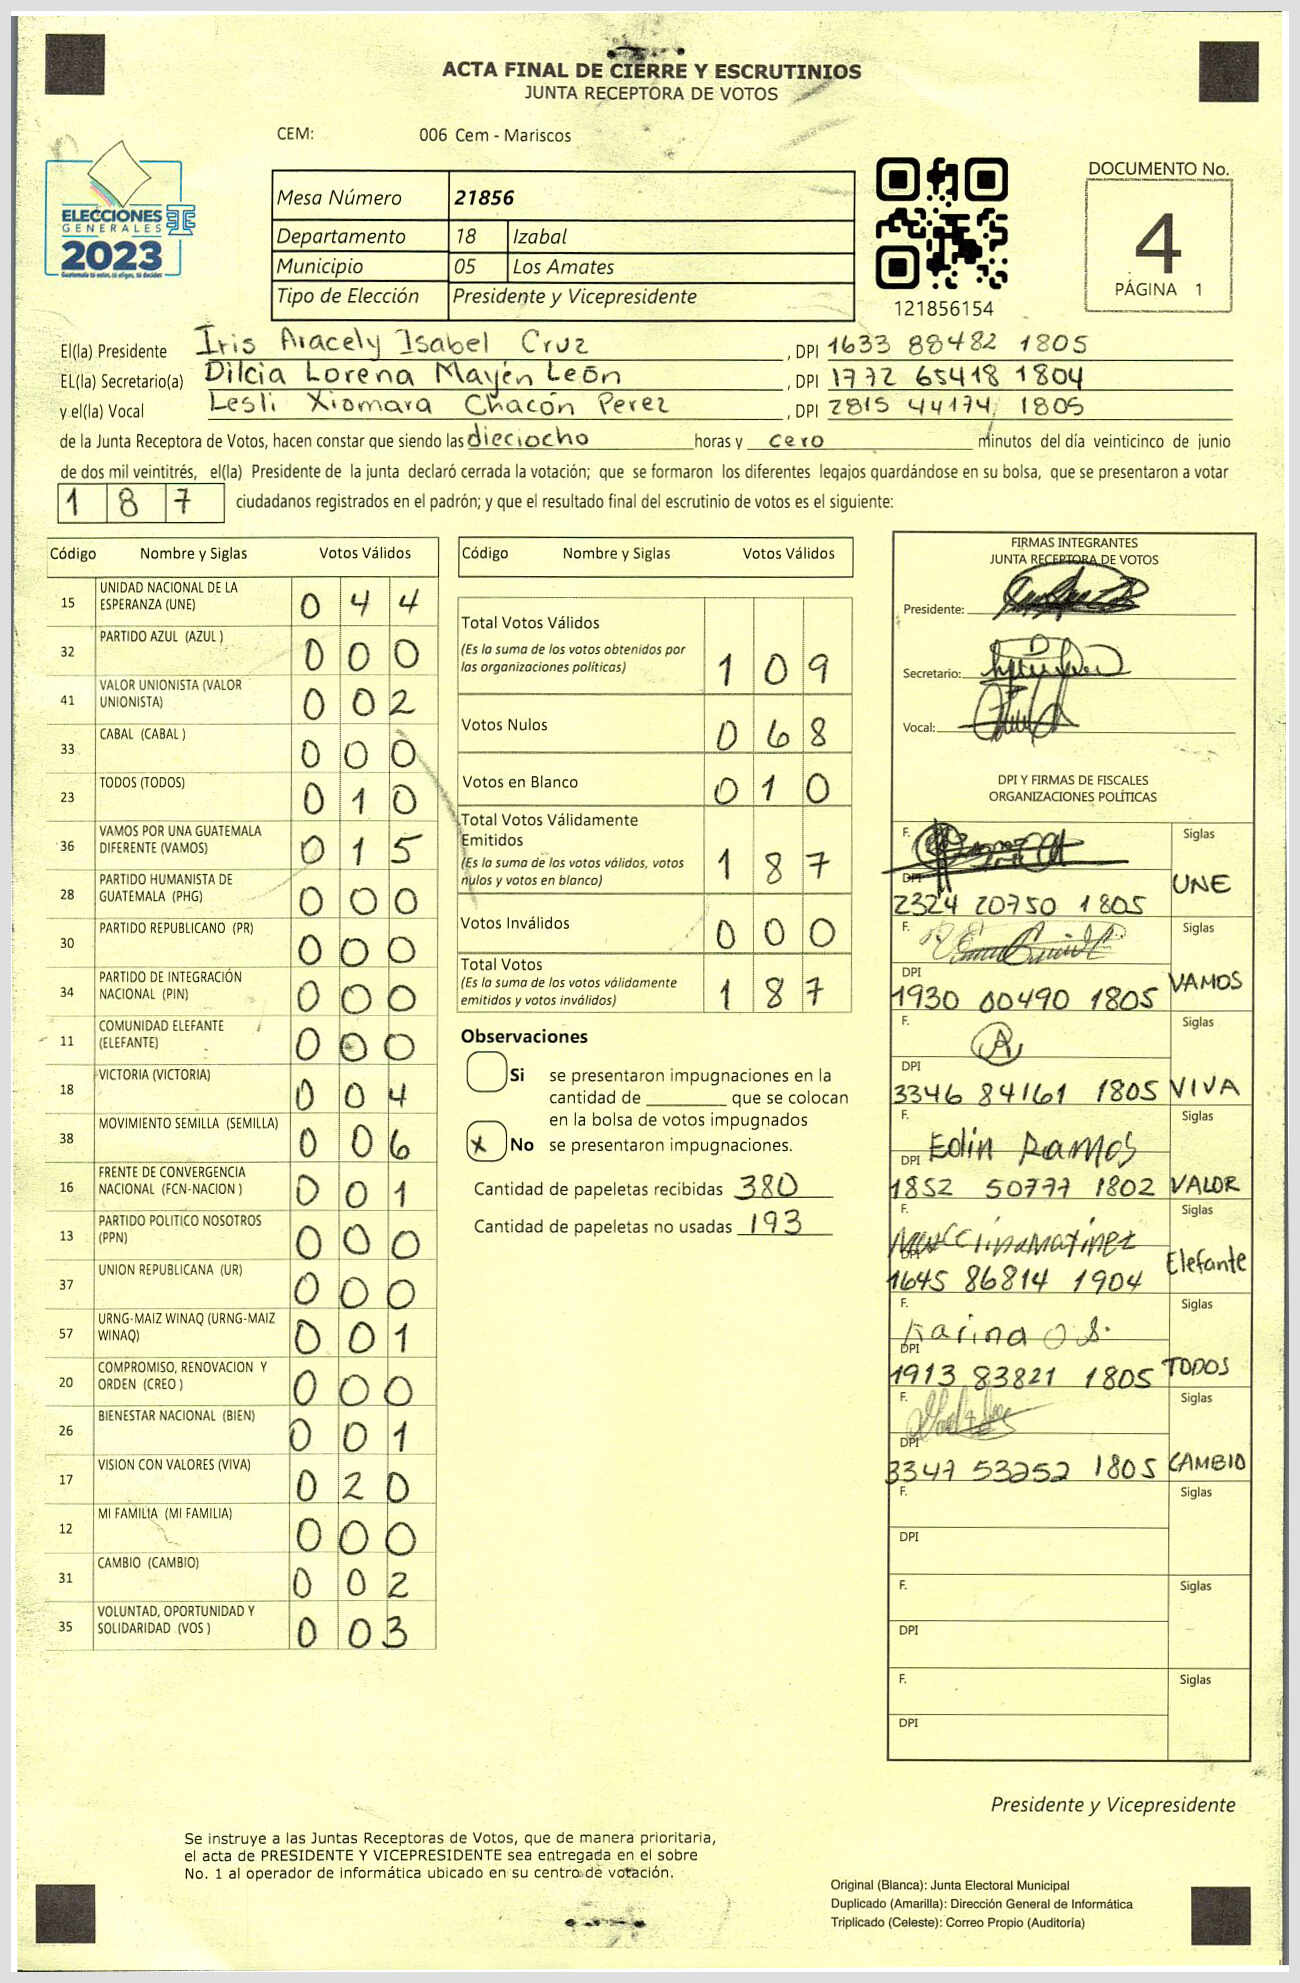 ACTA FINAL DE CIERRE Y ESCRUTINIOS
JUNTA RECEPTORA DE VOTOS
CEM: 006 Cem - Mariscos
ELECCIONES
GENERALES
2023
Guatemala tú votas, tú eliges, tú decides
Mesa Número 21856
Departamento 18 Izabal
Municipio 05 Los Amates
Tipo de Elección Presidente y Vicepresidente
121856154
DOCUMENTO No.
4
PÁGINA 1
El(la) Presidente Iris Aracely Isabel Cruz , DPI 1633 88482 1805
EL(la) Secretario(a) Dilcia Lorena Mayén León , DPI 1772 65418 1804
y el(la) Vocal Lesli Xiomara Chacón Perez , DPI 2815 44174 1805
de la Junta Receptora de Votos, hacen constar que siendo las dieciocho horas y cero minutos del día veinticinco de junio
de dos mil veintitrés, el(la) Presidente de la junta declaró cerrada la votación; que se formaron los diferentes legajos guardándose en su bolsa, que se presentaron a votar
187 ciudadanos registrados en el padrón; y que el resultado final del escrutinio de votos es el siguiente:
Código Nombre y Siglas Votos Válidos
15 UNIDAD NACIONAL DE LA ESPERANZA (UNE) 044
32 PARTIDO AZUL (AZUL ) 000
41 VALOR UNIONISTA (VALOR UNIONISTA) 002
33 CABAL (CABAL ) 000
23 TODOS (TODOS) 010
36 VAMOS POR UNA GUATEMALA DIFERENTE (VAMOS) 015
28 PARTIDO HUMANISTA DE GUATEMALA (PHG) 000
30 PARTIDO REPUBLICANO (PR) 000
34 PARTIDO DE INTEGRACIÓN NACIONAL (PIN) 000
11 COMUNIDAD ELEFANTE (ELEFANTE) 000
18 VICTORIA (VICTORIA) 004
38 MOVIMIENTO SEMILLA (SEMILLA) 006
16 FRENTE DE CONVERGENCIA NACIONAL (FCN-NACION ) 001
13 PARTIDO POLITICO NOSOTROS (PPN) 000
37 UNION REPUBLICANA (UR) 000
57 URNG-MAIZ WINAQ (URNG-MAIZ WINAQ) 001
20 COMPROMISO, RENOVACION Y ORDEN (CREO ) 000
26 BIENESTAR NACIONAL (BIEN) 001
17 VISION CON VALORES (VIVA) 020
12 MI FAMILIA (MI FAMILIA) 000
31 CAMBIO (CAMBIO) 002
35 VOLUNTAD, OPORTUNIDAD Y SOLIDARIDAD (VOS ) 003
Código Nombre y Siglas Votos Válidos
Total Votos Válidos
(Es la suma de los votos obtenidos por las organizaciones políticas) 109
Votos Nulos 068
Votos en Blanco 010
Total Votos Válidamente Emitidos
(Es la suma de los votos válidos, votos nulos y votos en blanco) 187
Votos Inválidos 000
Total Votos
(Es la suma de los votos válidamente emitidos y votos inválidos) 187
Observaciones
Si se presentaron impugnaciones en la
cantidad de ________ que se colocan
en la bolsa de votos impugnados
x No se presentaron impugnaciones.
Cantidad de papeletas recibidas 380
Cantidad de papeletas no usadas 193
FIRMAS INTEGRANTES
JUNTA RECEPTORA DE VOTOS
Presidente:
Secretario:
Vocal:
DPI Y FIRMAS DE FISCALES
ORGANIZACIONES POLÍTICAS
F. Siglas
DPI 2324 20750 1805 UNE
F. Siglas
DPI 1930 00490 1805 VAMOS
F. A Siglas
DPI 3346 84161 1805 VIVA
F. Edin Ramos Siglas
DPI 1852 50777 1802 VALOR
F. Siglas
DPI 1645 86814 1904 Elefante
F. Karina O S. Siglas
DPI 1913 83821 1805 TODOS
F. Siglas
DPI 3347 53252 1805 CAMBIO
F. Siglas
DPI
F. Siglas
DPI
F. Siglas
DPI
Presidente y Vicepresidente
Se instruye a las Juntas Receptoras de Votos, que de manera prioritaria,
el acta de PRESIDENTE Y VICEPRESIDENTE sea entregada en el sobre
No. 1 al operador de informática ubicado en su centro de votación.
Original (Blanca): Junta Electoral Municipal
Duplicado (Amarilla): Dirección General de Informática
Triplicado (Celeste): Correo Propio (Auditoría)